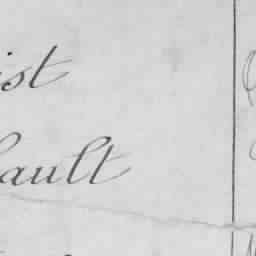 ist
ault